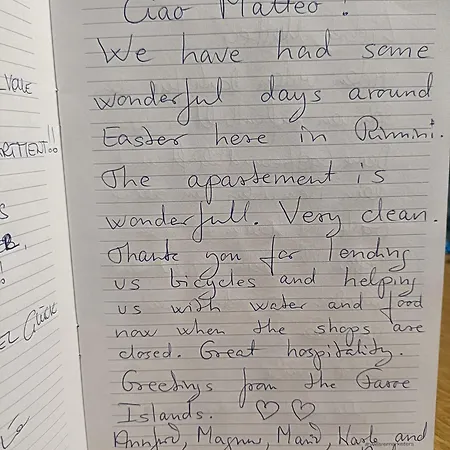 VALE
ARTMENT!!
EL Glück
Ciao Matteo!
We have had some
wonderful days around
Easter here in Rimini.
The apartement is
wonderfull. Very clean.
Thank you for lending
us bicycles and helping
us with water and food
now when the shops are
closed. Great hospitality.
Greetings from the Faroe
Islands. ♡ ♡
Magnus, and